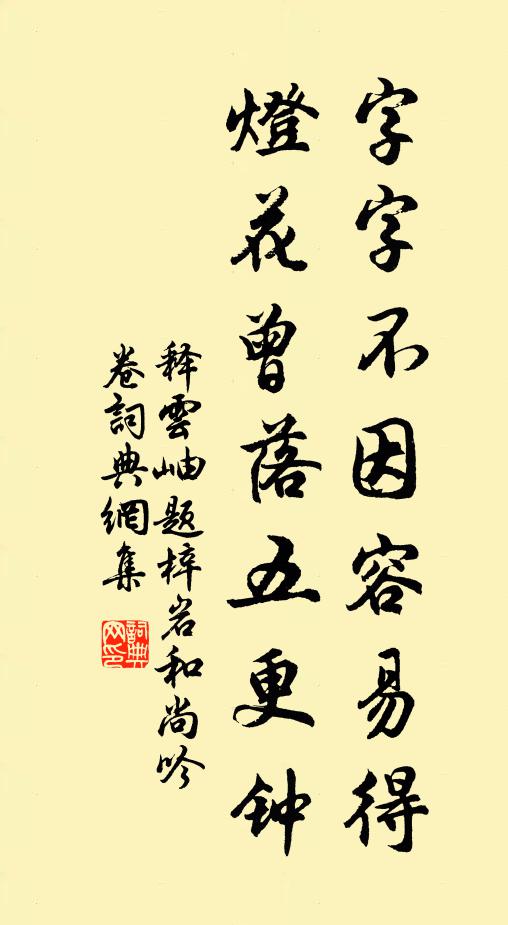 字字不因容易得
燈花曾落五更钟
释雲岫题梓岩和尚吟
卷詞典網集
詞典
网印